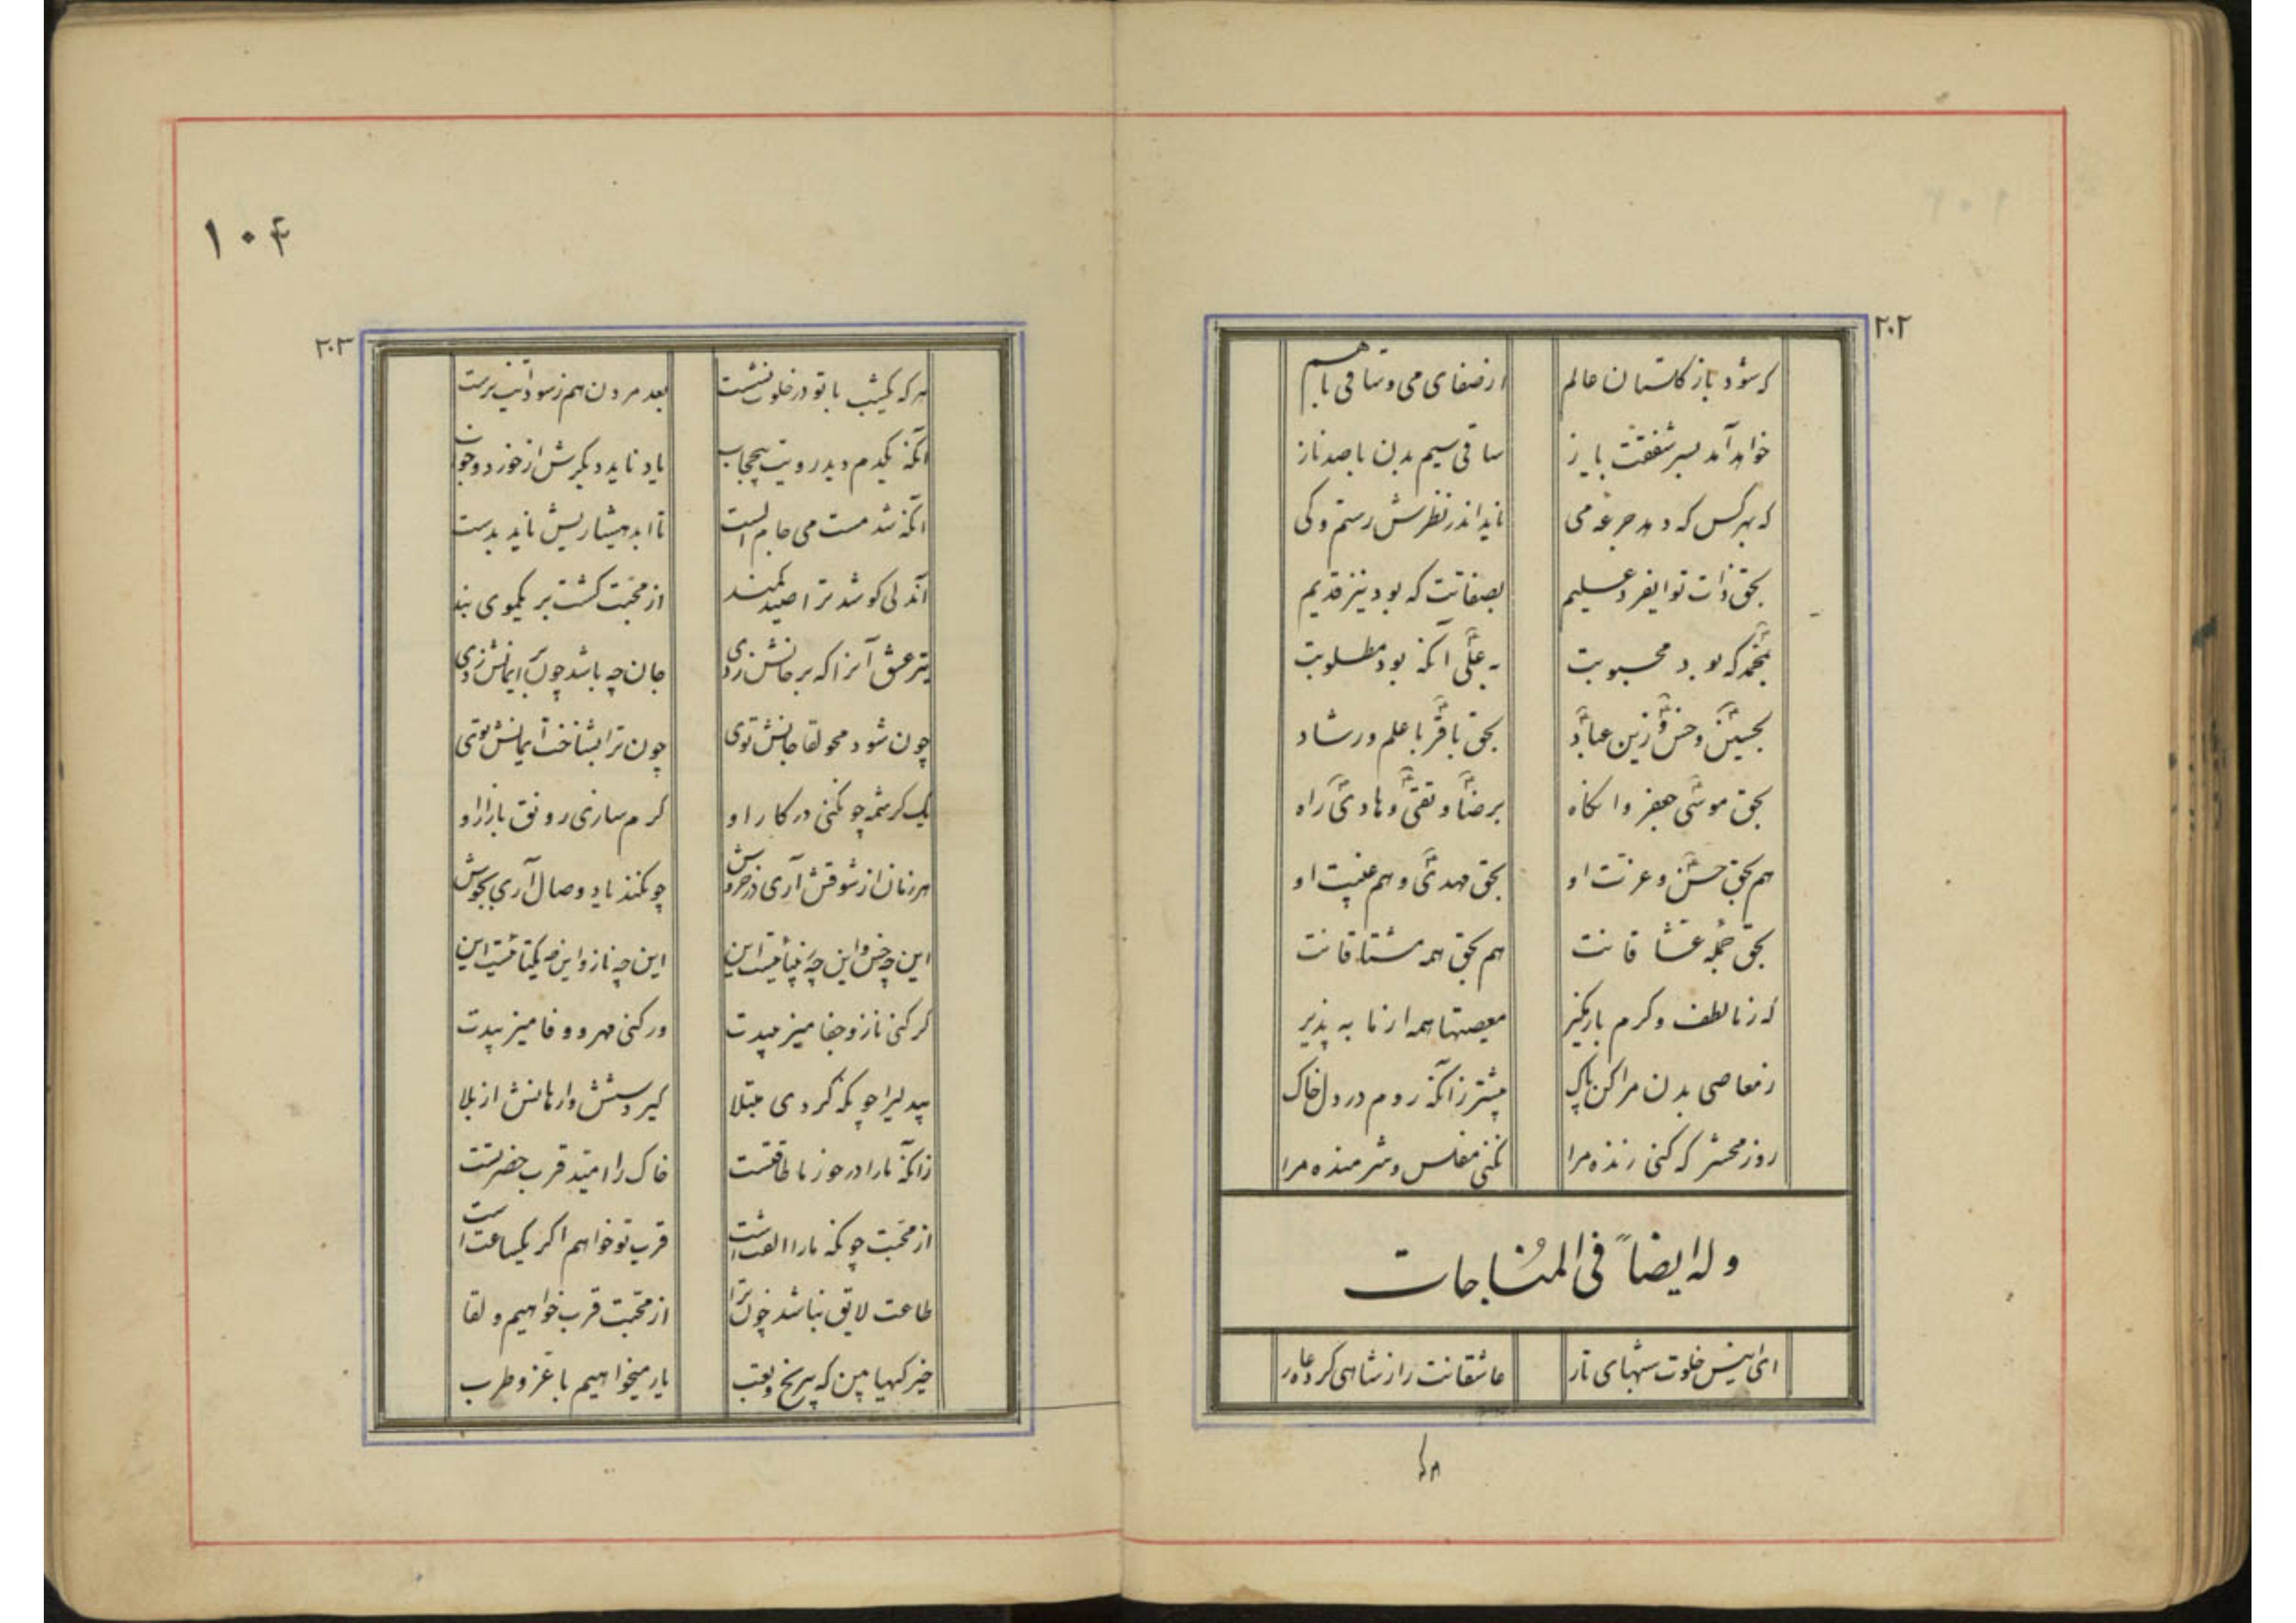 ۲۰۲
که شود باز گلستان عالم از صفای می و ساقی باهم
خواهد آمد بسر شفقت باز ساقی سیم بدن با صد ناز
که بهر کس که دهد جرعه می ناید اندر نظرش رستم و کی
بحق ذات تو ایفرد علیم بصفاتت که بود نیز قدیم
بمحمد که بود محبوبت به علی آنکه بود مطلوبت
بحسین و حسن و زین عباد بحق باقر با علم و رشاد
بحق موسی جعفر و آنگاه برضا و تقی و هادی راه
هم بحق حسن و عزت او بحق مهدی و هم غیبت او
بحق جمله عشاقانت هم بحق همه مشتاقانت
که ز ما لطف و کرم باز مگیر معصیتها همه از ما به پذیر
ز معاصی بدن مرا کن پاک پیشتر زانکه روم در دل خاک
روز محشر که کنی زنده مرا نکنی مفلس و شرمنده مرا
وله ایضاً فی المُناجات
ای انیس خلوت شبهای تار عاشقانت را ز شاهی کرده عار
۱۰۴
۲۰۳
هرکه یکشب با تو در خلوت نشست بعد مردن هم ز سودایت نرست
آنکه یکدم دید رویت بیحجاب یاد ناید دیگرش از خورد و خواب
آنکه شد مست می جام الست تا ابد هشاریش ناید بدست
آندلی کو شد ترا صید کمند از محبت گشت بر یکموی بند
تیر عشق آنرا که بر جانش زدی جان چه باشد چون بر ایمانش زدی
چون شود محو لقا جانش توی چون ترا بشناخت ایمانش توی
یک کرشمه چو کنی در کار او گرم سازی رونق بازار او
هر زمان از شوقش آری در خروش چو کند یاد وصال آری بجوش
این چه حسن و این چه زیبائیست این این چه ناز و این چه یکتائیست این
گر کنی ناز و جفا میزیبدت ور کنی مهر و وفا میزیبدت
بیدلیرا چونکه کردی مبتلا گیر دستش وارهانش از بلا
زانکه ما را در خور ما طاقتست خاک را امید قرب حضرتست
از محبت چونکه ما را الفت است قرب تو خواهم اگر یکساعت است
طاعت لایق نباشد چون ترا از محبت قرب خواهیم و لقا
خیر گیهای من که بیرنج و تعب یار میخواهیم با عز و طرب